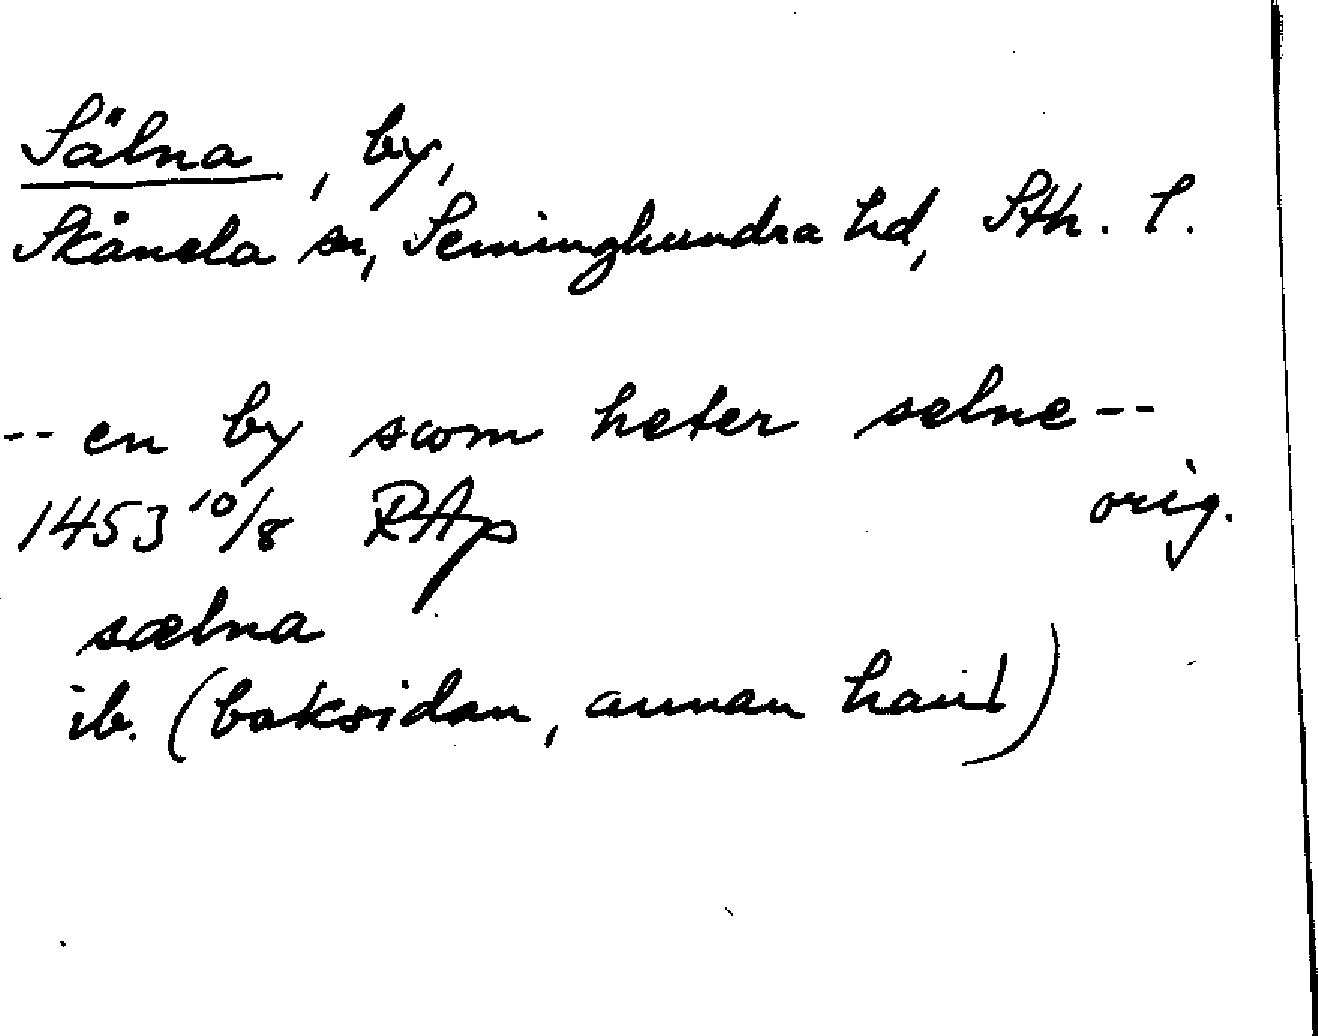 Sälna, by,
Skånela sn, Seminghundra hd, Sth. l.
-- en by swom heter selne --
1453 10/8 RAp orig.
sælna
ib. (baksidan, annan hand)